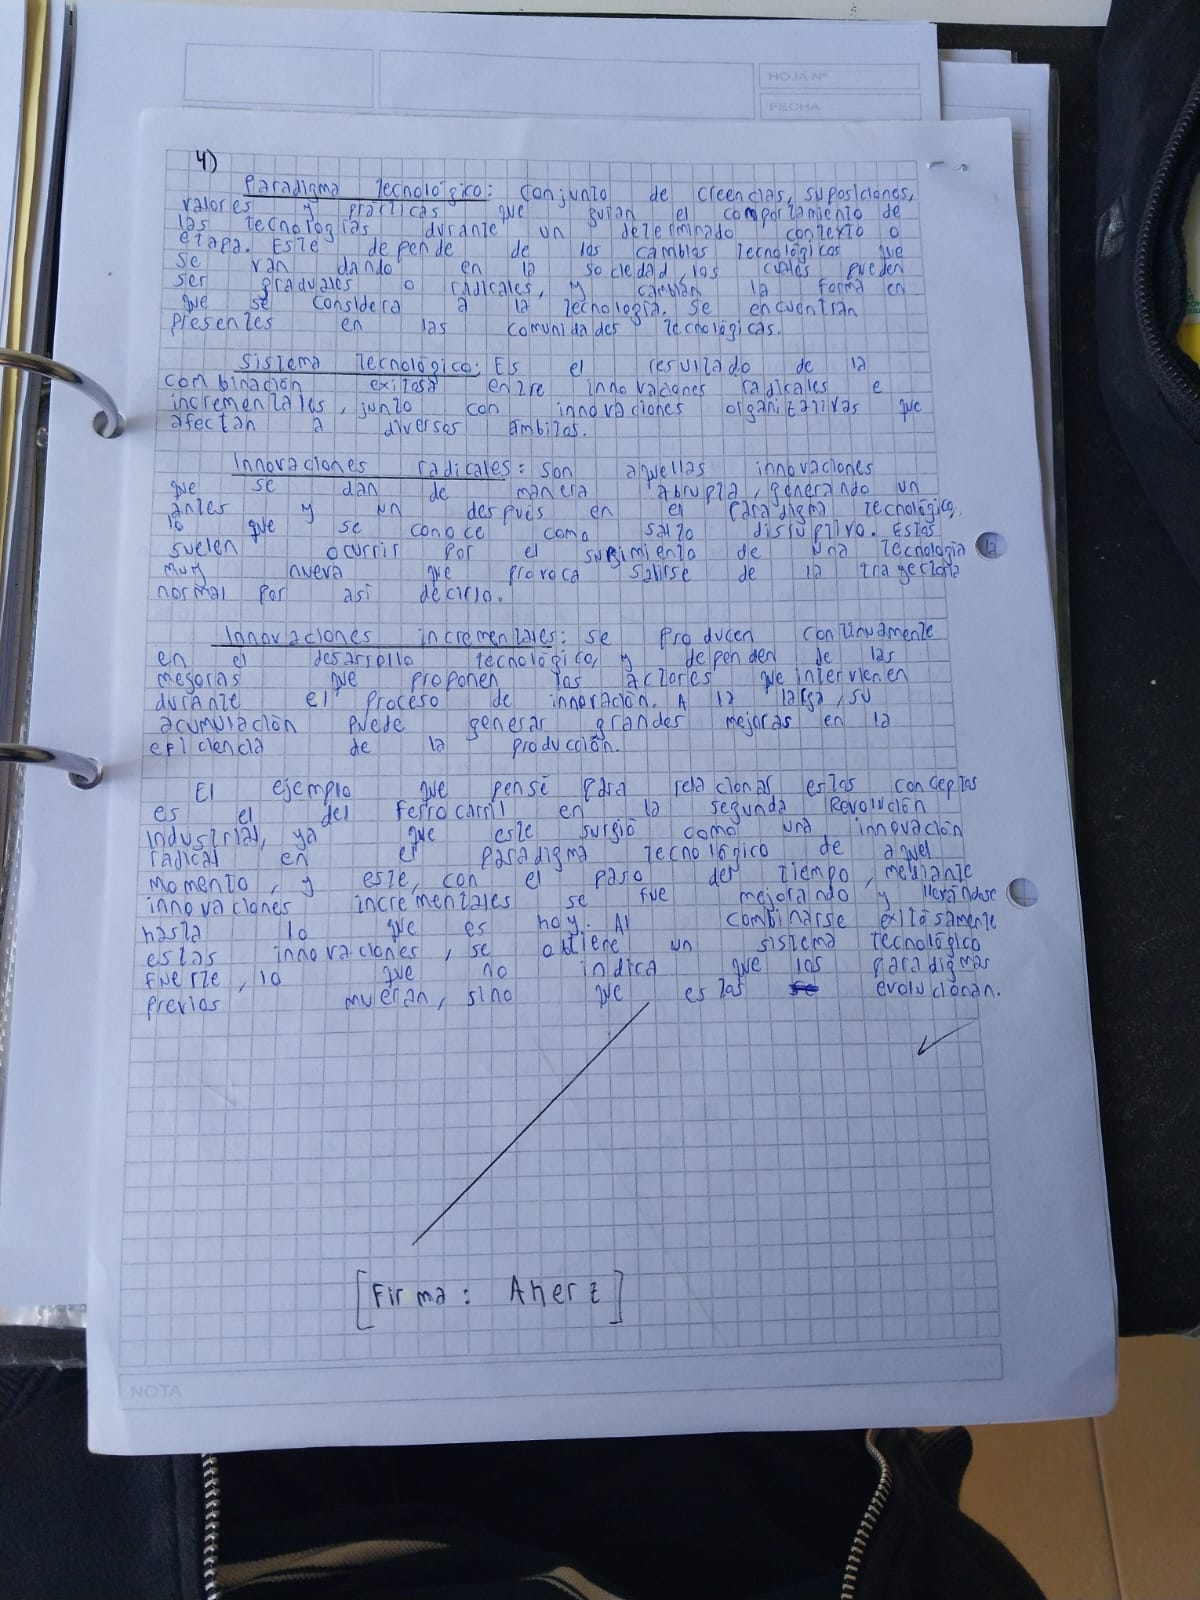 HOJA Nº
FECHA
4)
Paradigma Tecnológico: Conjunto de creencias, suposiciones,
valores y prácticas que guían el comportamiento de
las tecnologías durante un determinado contexto o
etapa. Este depende de los cambios tecnológicos que
se van dando en la sociedad, los cuales pueden
ser graduales o radicales, y cambian la forma en
que se considera a la tecnología. Se encuentran
presentes en las comunidades tecnológicas.
Sistema Tecnológico: Es el resultado de la
combinación exitosa entre innovaciones radicales e
incrementales, junto con innovaciones organizativas que
afectan a diversos ámbitos.
Innovaciones radicales: son aquellas innovaciones
que se dan de manera abrupta, generando un
antes y un después en el Paradigma Tecnológico,
lo que se conoce como salto disruptivo. Estas
suelen ocurrir por el surgimiento de una tecnología
muy nueva que provoca salirse de la trayectoria
normal por así decirlo.
Innovaciones incrementales: se producen continuamente
en el desarrollo tecnológico, y dependen de las
mejoras que proponen los actores que intervienen
durante el proceso de innovación. A la larga, su
acumulación puede generar grandes mejoras en la
eficiencia de la producción.
El ejemplo que pensé para relacionar estos conceptos
es el del Ferrocarril en la segunda Revolución
Industrial, ya que este surgió como una innovación
radical en el Paradigma Tecnológico de aquel
momento, y este, con el paso del tiempo, mediante
innovaciones incrementales se fue mejorando y llevándose
hasta lo que es hoy. Al combinarse exitósamente
estas innovaciones, se obtiene un sistema tecnológico
fuerte, lo que no indica que los paradigmas
previos mueran, sino que estos evolucionan.
[Firma: Aherz]
NOTA